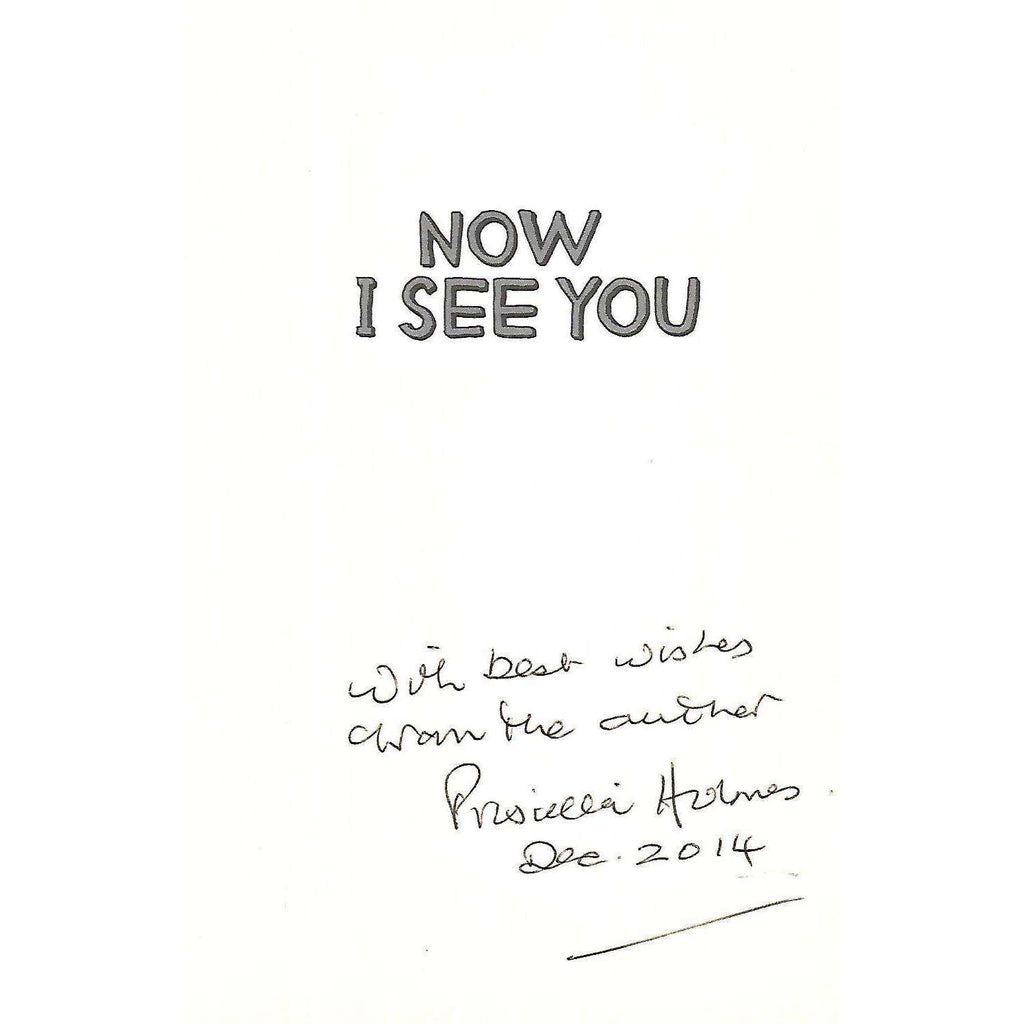 NOW
I SEE YOU
With best wishes
from the author
Priscilla Holmes
Dec. 2014